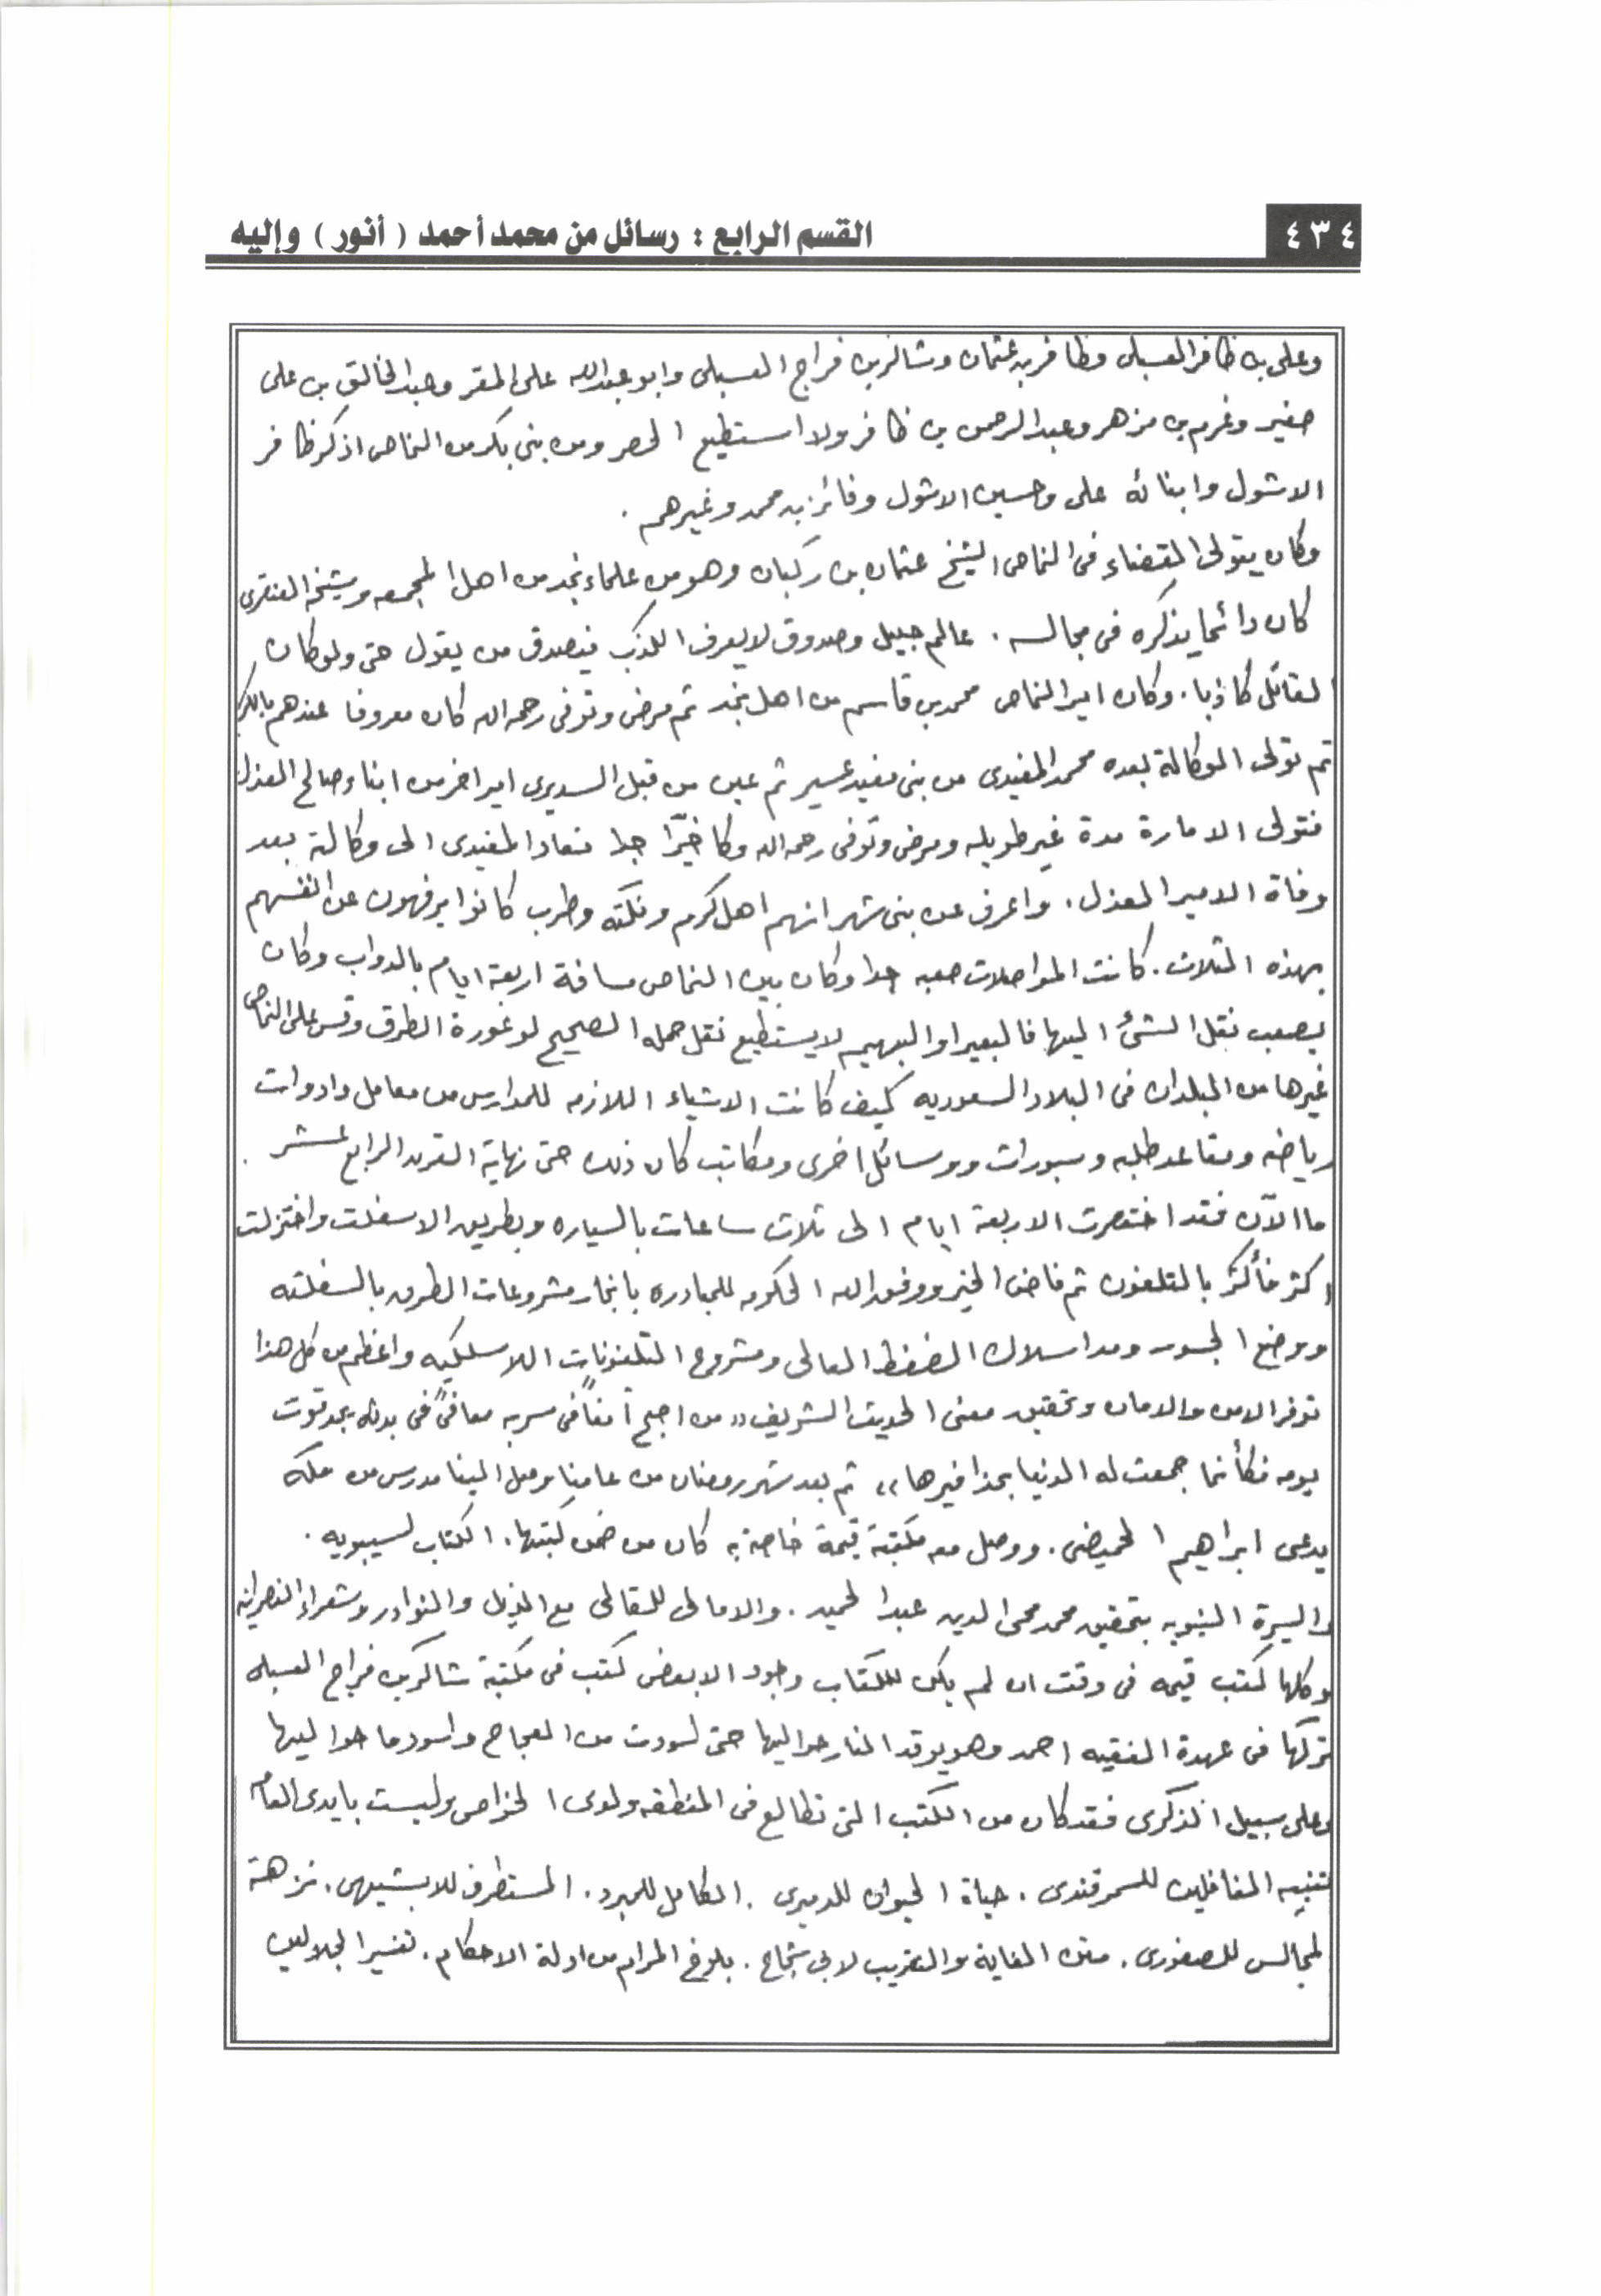 ٤٣٤
القسم الرابع : رسائل من محمد أحمد ( أنور ) وإليه
وعلى بن ظافر العسبلى وظافر بن عثمان وشاكر بن فراج العسبلى وابو عبدالله على المقر وعبدالخالق بن على
صغير وغرم بن مزهر وعبدالرحمن بن ظافر ولا استطيع الحصر ومن بنى بكر من النماص اذكر ظافر
الاشول وابنائه على وحسين الاشول وفائز بن محمد وغيرهم .
وكان يتولى القضاء فى النماص الشيخ عثمان بن ركبان وهو من علماء نجد من اهل المجمعه وشيخه العنقرى
كان دائما يذكره فى مجالسه . عالم جليل وصدوق لا يعرف الكذب فيصدق من يقول حتى ولو كان
القائل كاذبا . وكان امير النماص محمد بن قاسم من اهل نجد ثم مرض وتوفى رحمه الله كان معروفا عندهم بالكرم
ثم تولى الوكالة بعده محمد المفيدى من بنى مفيد عسير ثم عين من قبل السديرى امير اخر من ابناء صالح العذل
فتولى الامارة مدة غير طويله ومرض وتوفى رحمه الله وكا خيّرا جدا فعاد المفيدى الى وكالته بعد
وفاة الامير العذل . واعرف عن بنى شهر انهم اهل كرم ونكته وطرب كانوا يرفهون عن انفسهم
بهذه الثلاث . كانت المواصلات صعبه جدا وكان بين النماص مسافة اربعة ايام بالدواب وكان
يصعب نقل الشئ اليها فالبعير او البهيم لا يستطيع نقل حمله الصحيح لوعورة الطرق وقس على النماص
غيرها من البلدان فى البلاد السعوديه كيف كانت الاشياء اللازمه للمدارس من معامل وادوات
رياضه ومقاعد طلبه وسبورات ووسائل اخرى ومكاتب كان ذلك حتى نهاية القرن الرابع عشر .
اما الآن فقد اختصرت الاربعة ايام الى ثلاث ساعات بالسياره وبطريق الاسفلت واختزلت
اكثر فأكثر بالتلفون ثم فاض الخير ووفق الله الحكومه للمبادره بانجاز مشروعات الطرق بالسفلته
ووضع الجسور ومد اسلاك الضغط العالى ومشروع التلفونات اللاسلكيه واعظم من كل هذا
توفر الامن والامان وتحقيق معنى الحديث الشريف (( من اصبح آمناً فى سربه معافىً فى بدنه عنده قوت
يومه فكأنما جمعت له الدنيا بحذافيرها )) ثم بعد شهر رمضان من عامنا وصل الينا مدرس من مكه
يدعى ابراهيم الحميضى . ووصل معه مكتبة قيمة خاصة به كان من ضمن كتبها . الكتاب لسيبويه .
والسيرة النبويه بتحقيق محمد محى الدين عبدالحميد . والامالى للقالى مع الذيل والنوادر وشعراء النصرانيه
وكلها كتب قيمه فى وقت ان لم يكن للكتاب وجود الا بعض كتب فى مكتبة شاكر بن فراج العسبلى
تركها فى عهدة الفقيه احمد وهو يوقد النار حواليها حتى اسودت من العجاج واسود ما حواليها
وعلى سبيل الذكرى فقد كان من الكتب التى تطالع فى المنطقه ولدى الخواص وليست بايدى العامه
تنبيه الغافلين للسمرقندى . حياة الحيوان للدميرى . الكامل للمبرد . المستطرف للابشيهى . نزهة
المجالس للصفورى . متن الغاية والتقريب لابى شجاع . بلوغ المرام من ادلة الاحكام . تفسير الجلالين